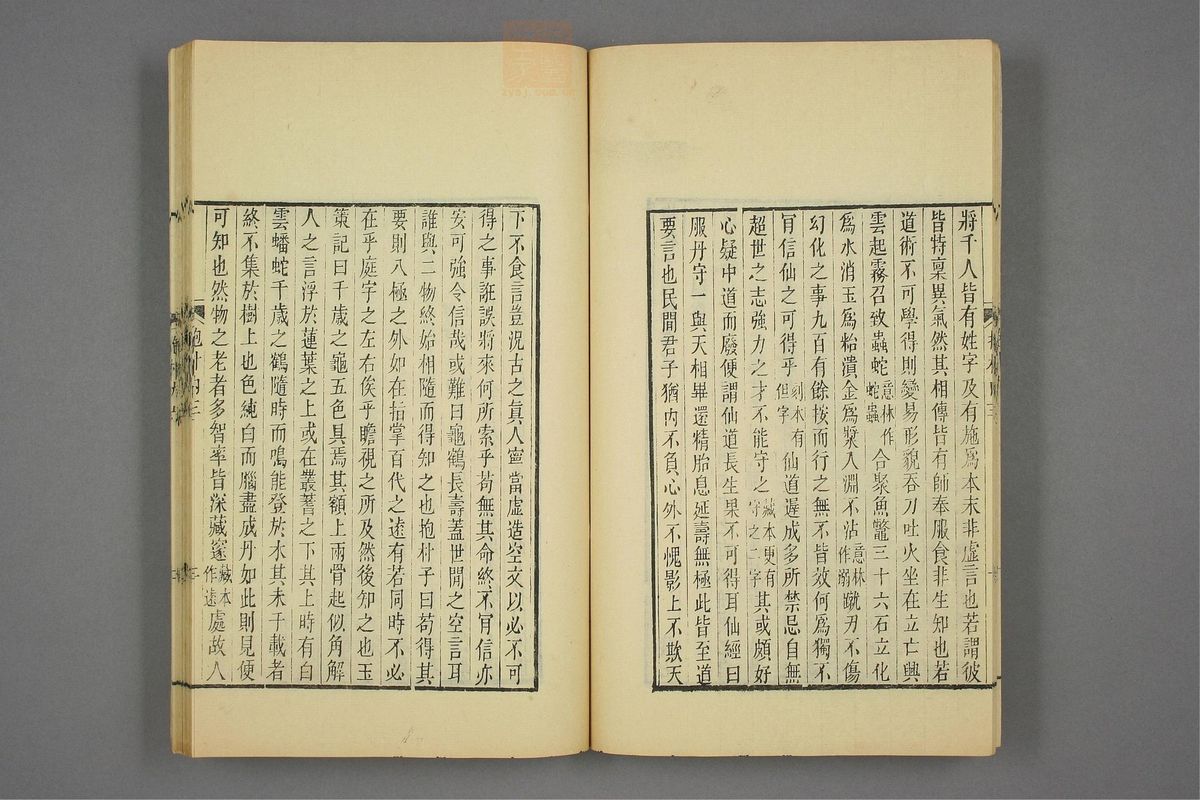 將千人皆有姓字及有施爲本末非虛言也若謂彼
皆特稟異氣然其相傳皆有師奉服食非生知也若
道術不可學得則變易形貌吞刀吐火坐在立亡興
雲起霧召致蟲蛇意林作蛇蟲合聚魚鼈三十六石立化
爲水消玉爲粭潰金爲漿入淵不沾意林作溺蹴刃不傷
幻化之事九百有餘按而行之無不皆效何爲獨不
肎信仙之可得乎刻本有但字仙道遲成多所禁忌自無
超世之志強力之才不能守之藏本更有守之二字其或頗好
心疑中道而廢便謂仙道長生果不可得耳仙經曰
服丹守一與天相畢還精胎息延壽無極此皆至道
要言也民閒君子猶內不負心外不愧影上不欺天
下不食言豈況古之眞人寧當虛造空文以必不可
得之事誑誤將來何所索乎苟無其命終不肎信亦
安可強令信哉或難曰龜鶴長壽蓋世閒之空言耳
誰與二物終始相隨而得知之也抱朴子曰苟得其
要則八極之外如在指掌百代之遠有若同時不必
在乎庭宇之左右俟乎瞻視之所及然後知之也玉
策記曰千歲之龜五色具焉其額上兩骨起似角解
人之言浮於蓮葉之上或在叢蓍之下其上時有白
雲蟠蛇千歲之鶴隨時而鳴能登於木其未千載者
終不集於樹上也色純白而腦盡成丹如此則見便
可知也然物之老者多智率皆深藏邃藏本作遠處故人
抱朴內三
三